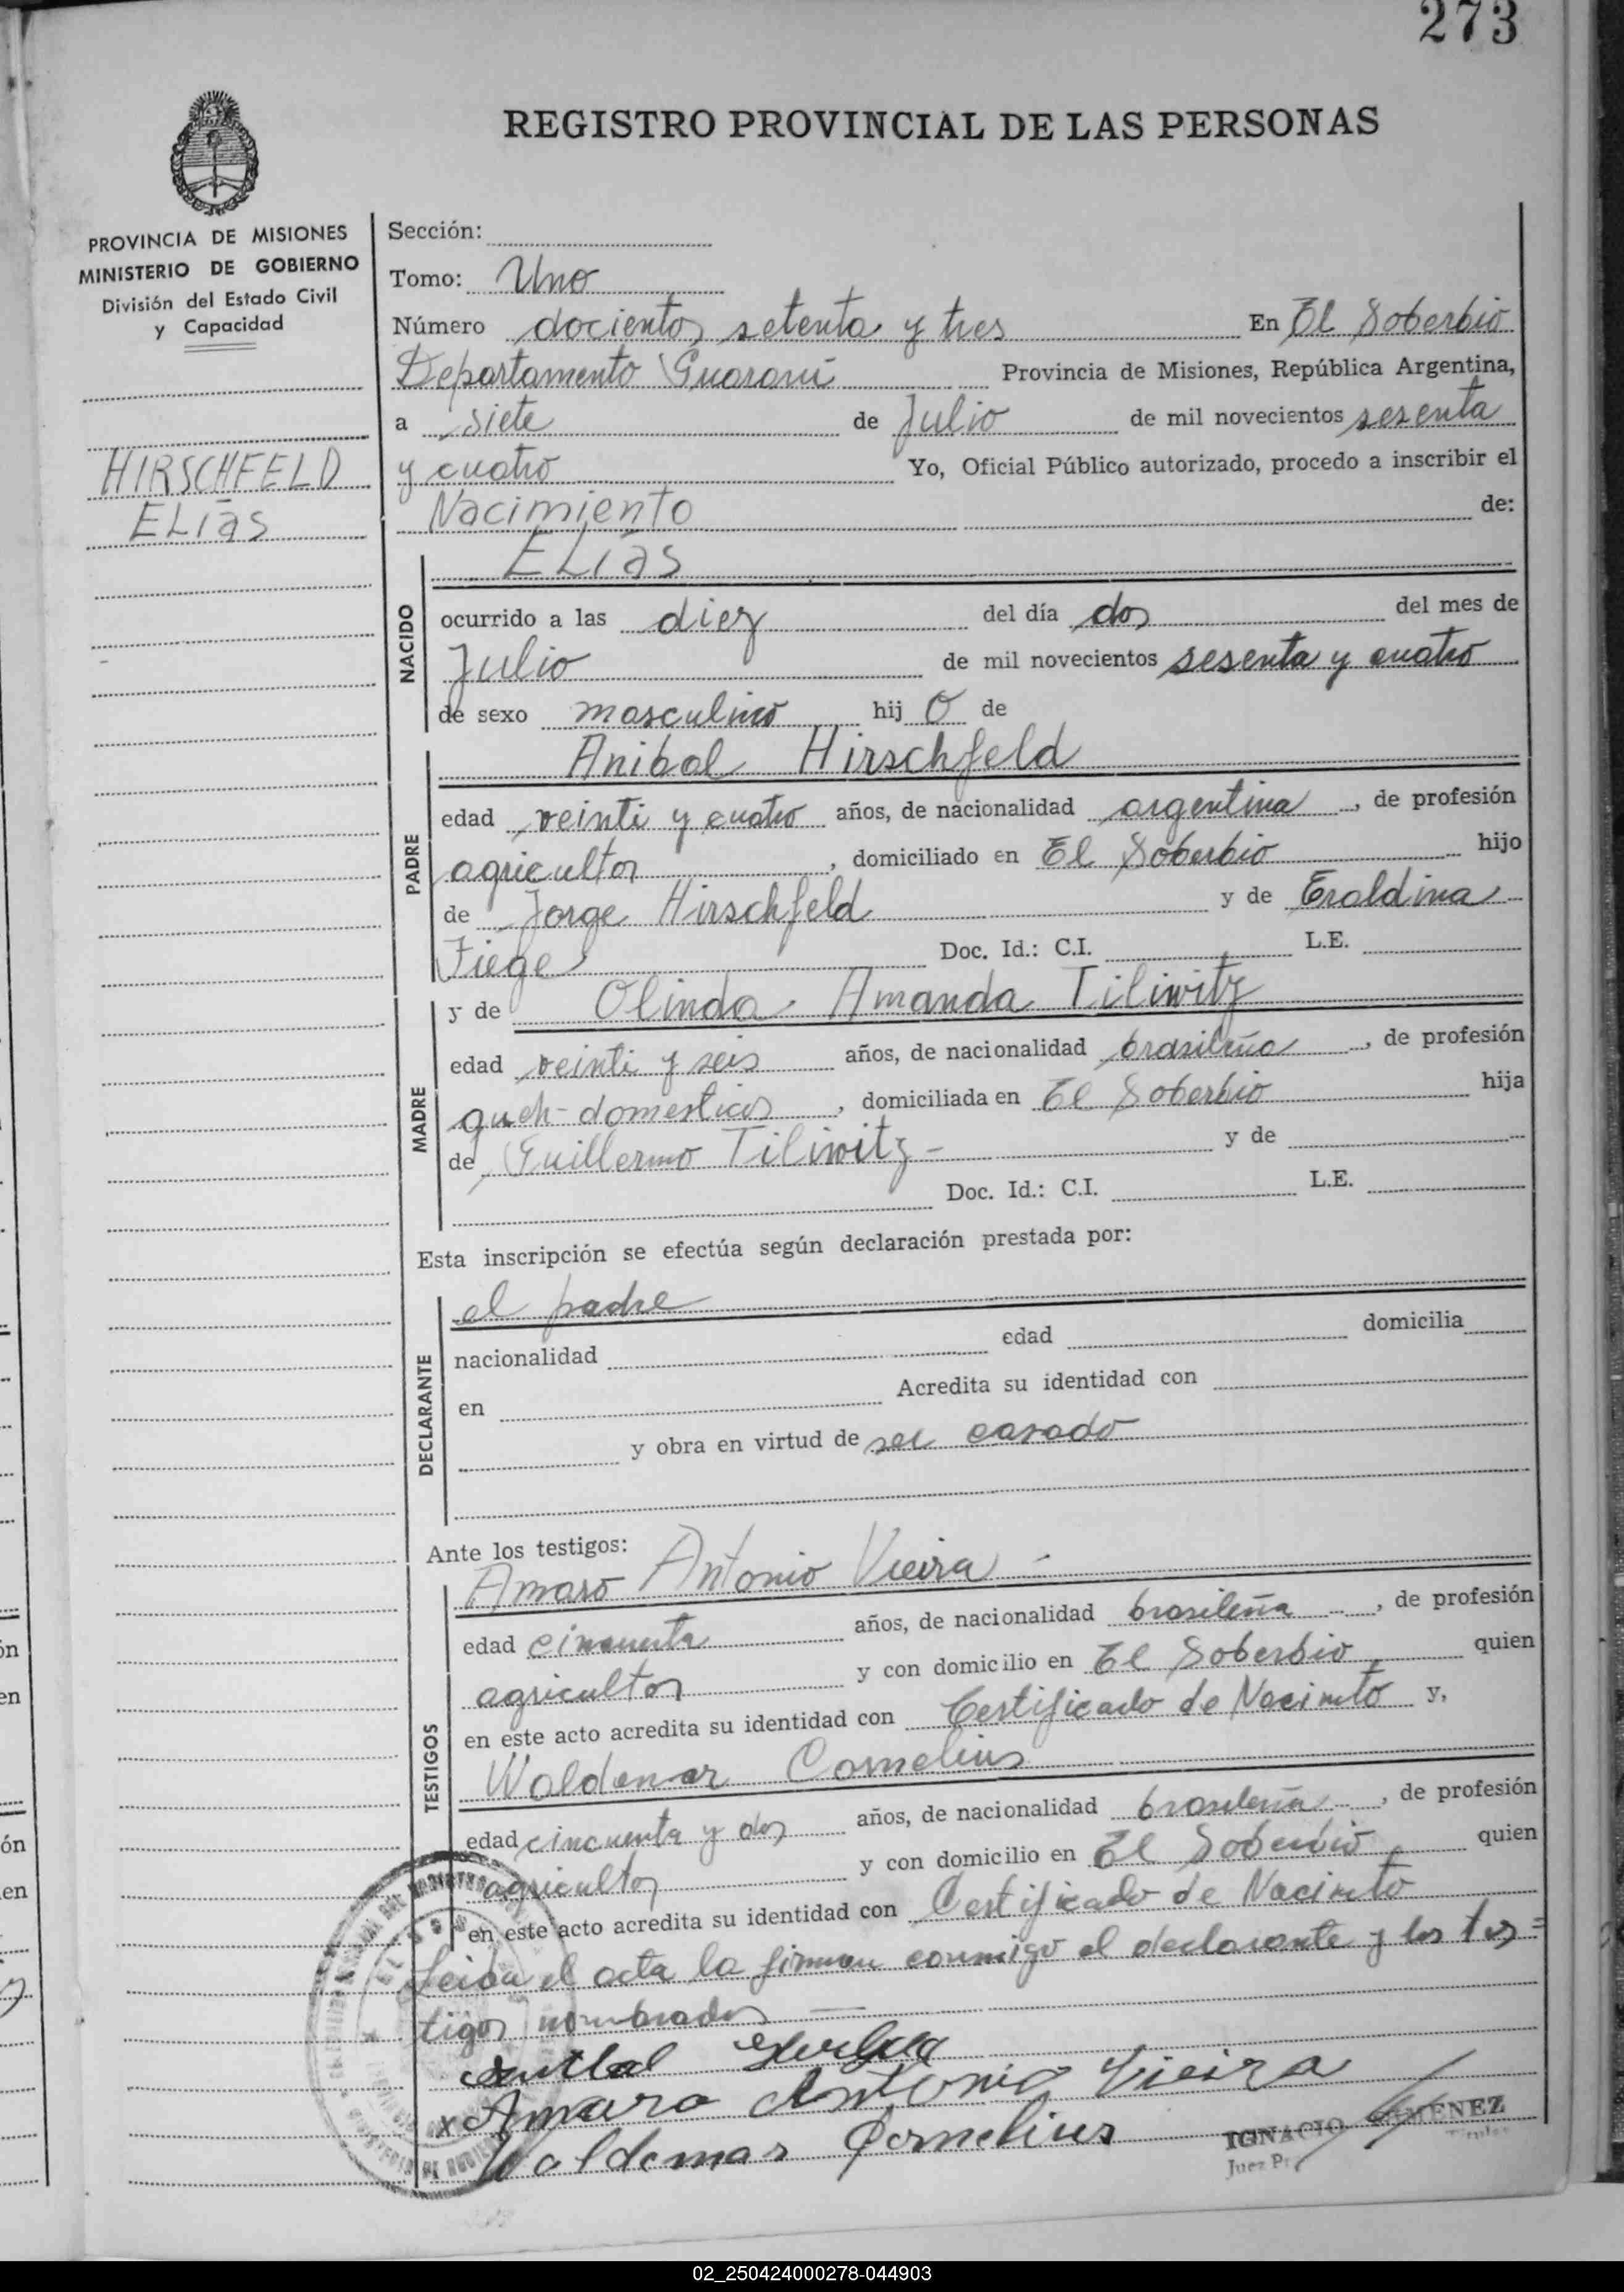 273
REGISTRO PROVINCIAL DE LAS PERSONAS
PROVINCIA DE MISIONES
MINISTERIO DE GOBIERNO
División del Estado Civil
y Capacidad
HIRSCHFELD
ELías
Sección:
Tomo: Uno
Número docientos setenta y tres En El Soberbio
Departamento Guaraní Provincia de Misiones, República Argentina,
a siete de Julio de mil novecientos sesenta
y cuatro Yo, Oficial Público autorizado, procedo a inscribir el
Nacimiento de:
ELías
NACIDO
ocurrido a las diez del día dos del mes de
Julio de mil novecientos sesenta y cuatro
de sexo masculino hij o de
Anibal Hirschfeld
PADRE
edad veinti y cuatro años, de nacionalidad argentina, de profesión
agricultor, domiciliado en El Soberbio hijo
de Jorge Hirschfeld y de Eraldina
Fiege Doc. Id.: C.I. L.E.
y de Olinda Amanda Tiliwitz
MADRE
edad veinti y seis años, de nacionalidad brasileña, de profesión
queh-domesticos, domiciliada en El Soberbio hija
de Guillermo Tiliwitz - y de
Doc. Id.: C.I. L.E.
Esta inscripción se efectúa según declaración prestada por:
el padre
DECLARANTE
nacionalidad edad domicilia
en Acredita su identidad con
y obra en virtud de ser casado
Ante los testigos:
Amaro Antonio Vieira -
TESTIGOS
edad cincuenta años, de nacionalidad brasileña, de profesión
agricultor y con domicilio en El Soberbio quien
en este acto acredita su identidad con Certificado de Nacimto y,
Waldemar Cornelius
edad cincuenta y dos años, de nacionalidad brasileña, de profesión
agricultor y con domicilio en El Soberbio quien
en este acto acredita su identidad con Certificado de Nacimto
Leida el acta la firman conmigo el declarante y los tes=
tigos nombrados
x Amaro Antonio Vieira
Waldemar Cornelius
IGNACIO
Juez
02_250424000278-044903